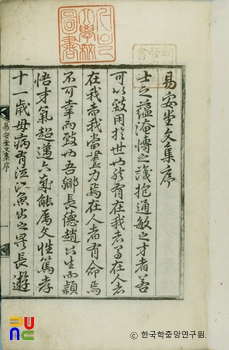 易安堂文集序
士之蘊淹博之識抱通敏之才者若
可以致用於世而然有在我者焉在人者
在我者我當盡力焉在人者有命焉
不可幸而致以吾鄉長德趙公生而穎
悟才氣超邁六歲能屬文性篤孝
十一歲母病有泣魚出之異長遊
易安堂文集序
한국학중앙연구원